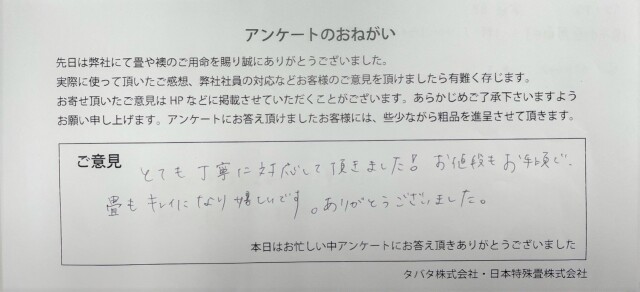 アンケートのおねがい
先日は弊社にて畳や襖のご用命を賜り誠にありがとうございました。
実際に使って頂いたご感想、弊社社員の対応などお客様のご意見を頂けましたら有難く存じます。
お寄せ頂いたご意見は HP などに掲載させていただくことがございます。あらかじめご了承下さいますよう
お願い申し上げます。アンケートにお答え頂けましたお客様には、些少ながら粗品を進呈させて頂きます。
ご意見
とても丁寧に対応して頂きました! お値段もお手頃で、
畳もキレイになり嬉しいです。ありがとうございました。
本日はお忙しい中アンケートにお答え頂きありがとうございました
タバタ株式会社・日本特殊畳株式会社